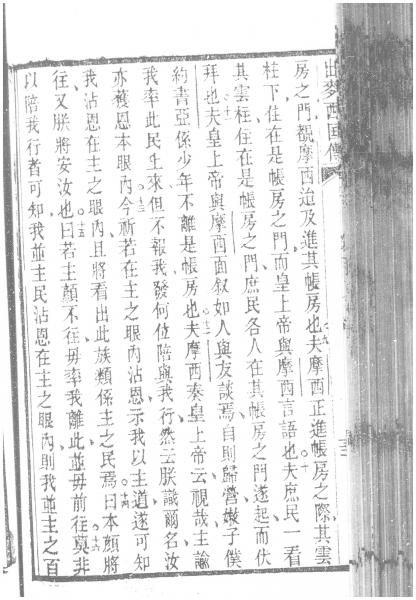 出麥西國傳
房之門、觀摩西迨及進其帳房也夫摩西正進帳房之際其雲
柱下住在是帳房之門、而皇上帝與摩西言語也夫庶民一看
其雲柱住在是帳房之門、庶民各人在其帳房之門遂起而伏
拜也夫皇上帝與摩西面叙如人與友談焉自則歸營嫩子僕
約書亞係少年不離是帳房也夫摩西奏皇上帝云視哉主諭
我率此民生來但不報我發何位陪與我行然云朕識爾名汝
亦獲恩本眼內今祈若在主之眼內沾恩示我以主道遂可知
我沾恩在主之眼內且將看出此族類係主之民焉曰本顏將
往又朕將安汝也曰若主顏不往毋率我離此並毋前往莫非
以陪我行者可知我並主民沾恩在主之眼內則我並主之百